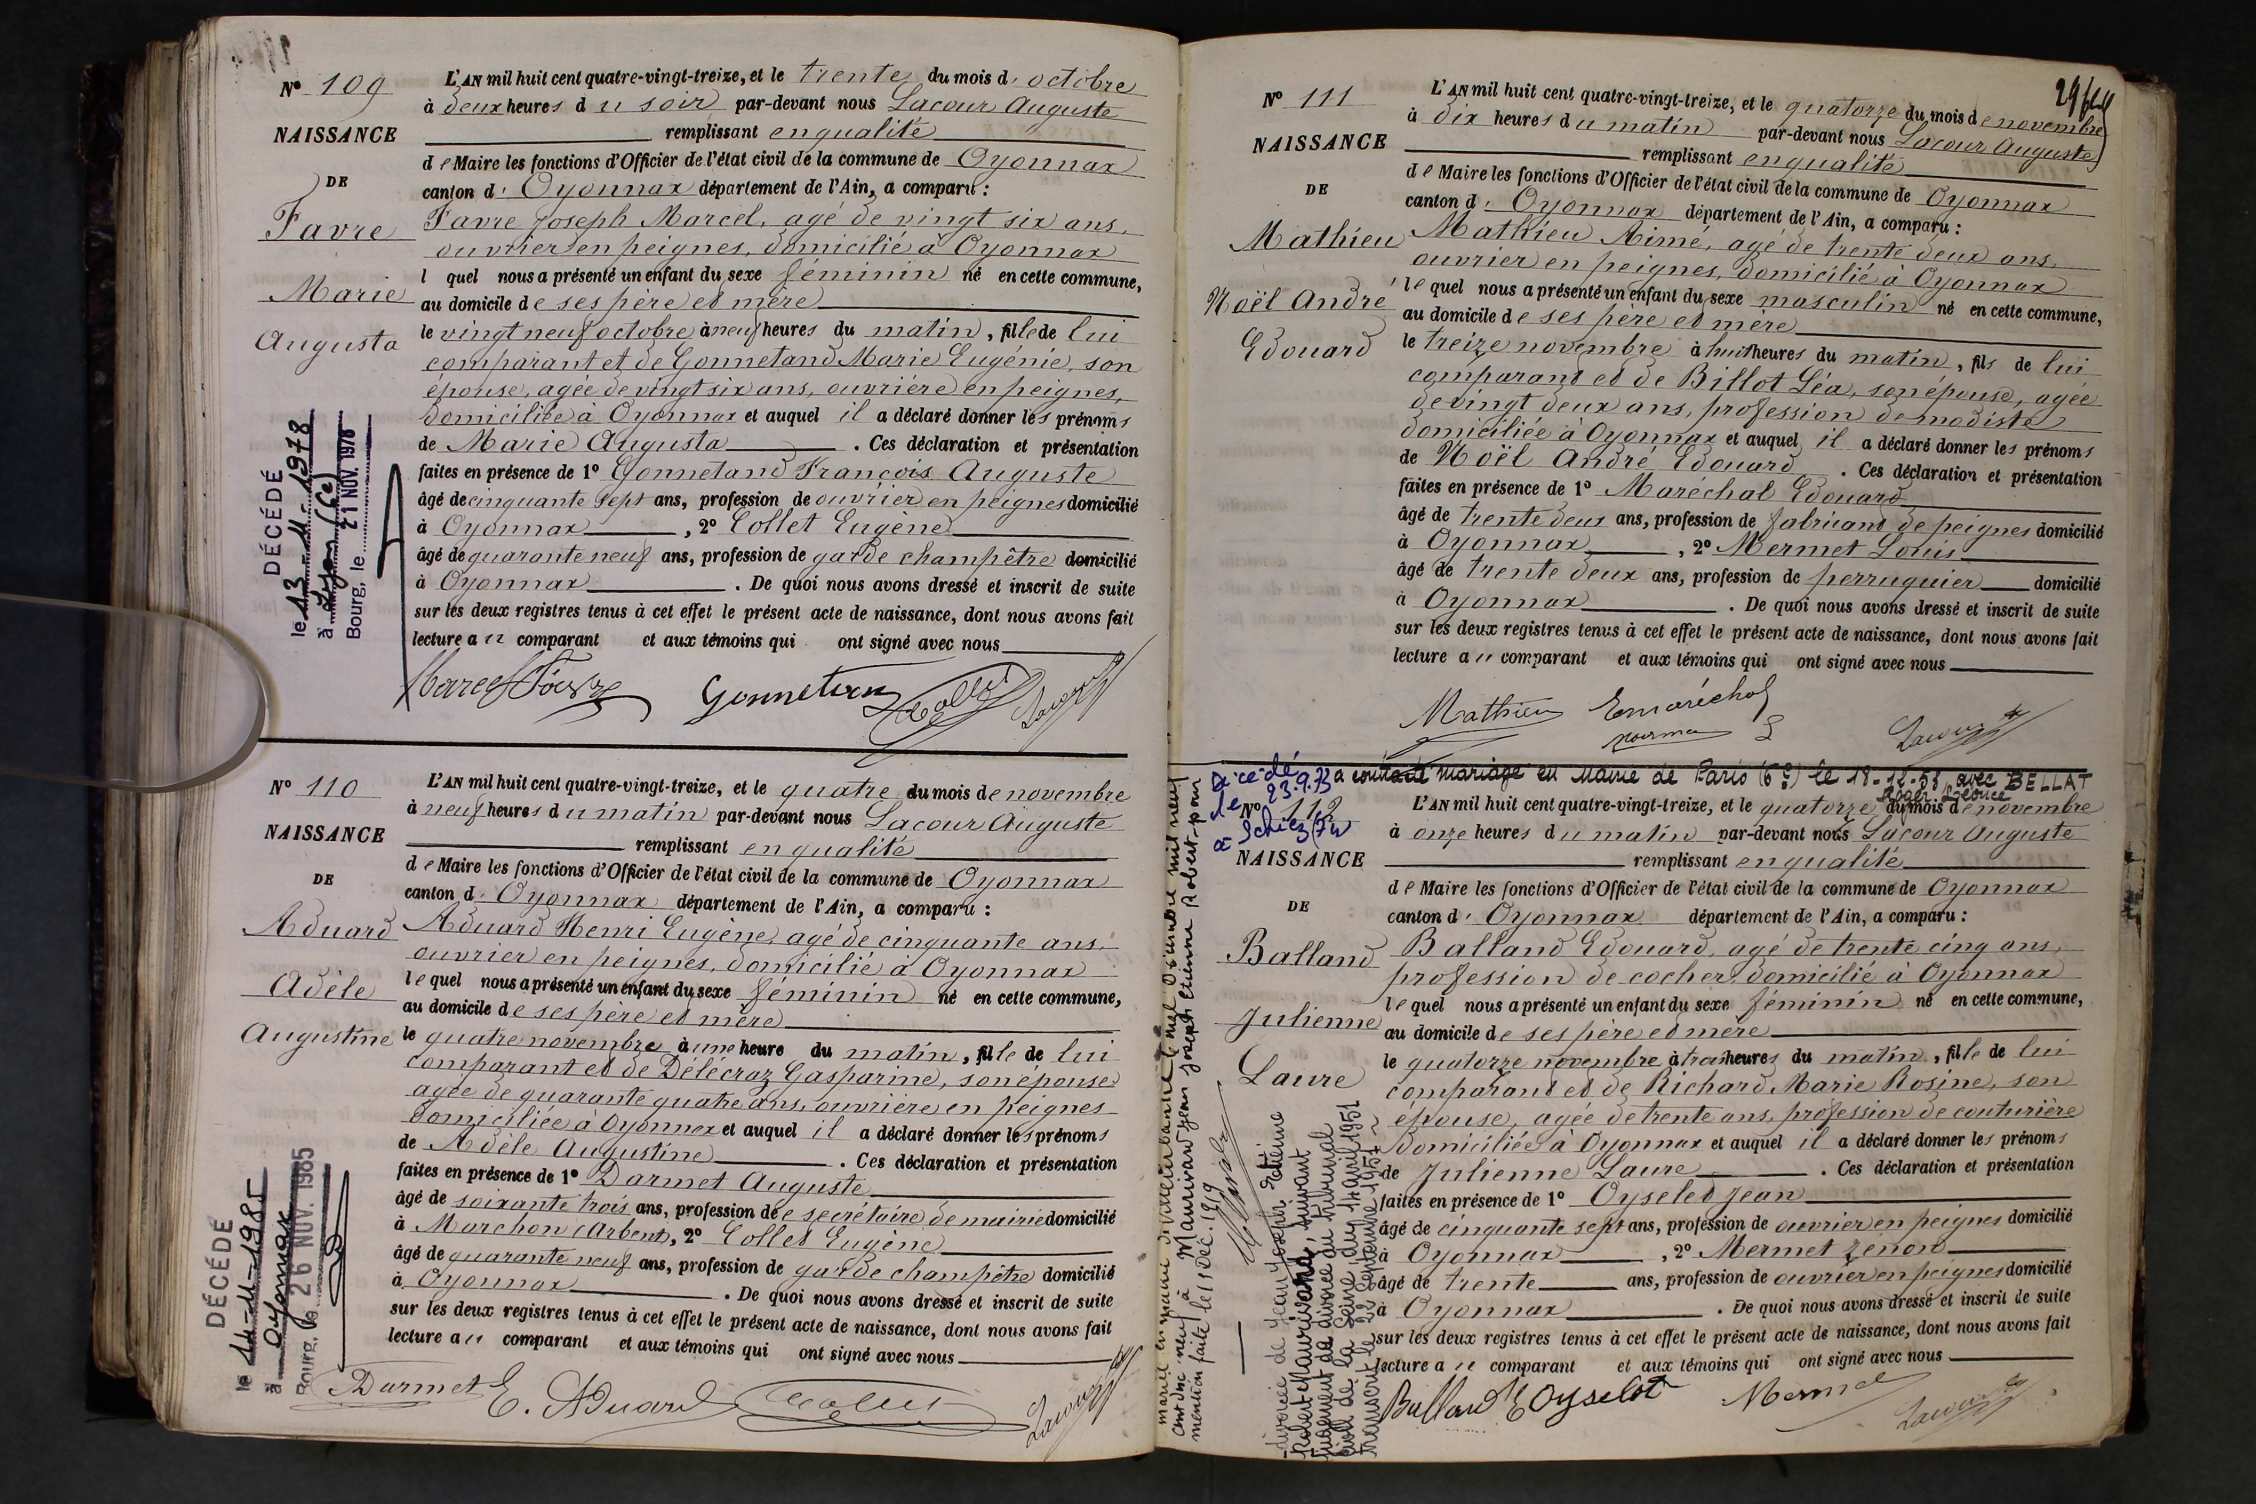 N° 109
NAISSANCE
DE
Favre
Marie
Augusta
DÉCÉDÉ
le 13-11-1978
à Lyon (6e)
Bourg, le 21 NOV. 1978
L'AN mil huit cent quatre-vingt-treize, et le trente du mois d'octobre
à deux heures du soir par-devant nous Lacour Auguste
remplissant en qualité
de Maire les fonctions d'Officier de l'état civil de la commune de Oyonnax
canton d'Oyonnax département de l'Ain, a comparu :
Favre Joseph Marcel, agé de vingt six ans,
ouvrier en peignes, domicilié à Oyonnax
lequel nous a présenté un enfant du sexe féminin né en cette commune,
au domicile de ses père et mère
le vingt neuf octobre à neuf heures du matin, fille de lui
comparant et de Gonnetand Marie Eugénie, son
épouse, agée de vingt six ans, ouvrière en peignes,
domiciliée à Oyonnax et auquel il a déclaré donner les prénoms
de Marie Augusta. Ces déclaration et présentation
faites en présence de 1° Gonnetand François Auguste
âgé de cinquante sept ans, profession de ouvrier en peignes domicilié
à Oyonnax, 2° Collet Eugène
âgé de quarante neuf ans, profession de garde champêtre domicilié
à Oyonnax. De quoi nous avons dressé et inscrit de suite
sur les deux registres tenus à cet effet le présent acte de naissance, dont nous avons fait
lecture au comparant et aux témoins qui ont signé avec nous
Marcel Favre Gonnetan Collet Lacour
N° 110
NAISSANCE
DE
Aduard
Adèle
Augustine
DÉCÉDÉ
le 14-11-1985
à Oyonnax
Bourg, le 26 NOV. 1985
L'AN mil huit cent quatre-vingt-treize, et le quatre du mois de novembre
à neuf heures du matin par-devant nous Lacour Auguste
remplissant en qualité
de Maire les fonctions d'Officier de l'état civil de la commune de Oyonnax
canton d'Oyonnax département de l'Ain, a comparu :
Aduard Henri Eugène, agé de cinquante ans,
ouvrier en peignes, domicilié à Oyonnax
lequel nous a présenté un enfant du sexe féminin né en cette commune,
au domicile de ses père et mère
le quatre novembre à une heure du matin, fille de lui
comparant et de Délécraz Gasparine, son épouse
agée de quarante quatre ans, ouvrière en peignes
domiciliée à Oyonnax et auquel il a déclaré donner les prénoms
de Adèle Augustine. Ces déclaration et présentation
faites en présence de 1° Darmet Auguste
âgé de soixante trois ans, profession de secrétaire de mairie domicilié
à Marchon (Arbent), 2° Collet Eugène
âgé de quarante neuf ans, profession de garde champêtre domicilié
à Oyonnax. De quoi nous avons dressé et inscrit de suite
sur les deux registres tenus à cet effet le présent acte de naissance, dont nous avons fait
lecture au comparant et aux témoins qui ont signé avec nous
Darmet E. Aduard Collet Lacour
N° 111
NAISSANCE
DE
Mathieu
Noël André
Edouard
L'AN mil huit cent quatre-vingt-treize, et le quatorze du mois de novembre
à dix heures du matin par-devant nous Lacour Auguste
remplissant en qualité
de Maire les fonctions d'Officier de l'état civil de la commune de Oyonnax
canton d'Oyonnax département de l'Ain, a comparu :
Mathieu Aimé, agé de trente deux ans,
ouvrier en peignes, domicilié à Oyonnax
lequel nous a présenté un enfant du sexe masculin né en cette commune,
au domicile de ses père et mère
le treize novembre à huit heures du matin, fils de lui
comparant et de Billot Léa, son épouse, agée
de vingt deux ans, profession de modiste
domiciliée à Oyonnax et auquel il a déclaré donner les prénoms
de Noël André Edouard. Ces déclaration et présentation
faites en présence de 1° Maréchal Edouard
âgé de trente deux ans, profession de fabricant de peignes domicilié
à Oyonnax, 2° Mermet Louis
âgé de trente deux ans, profession de perruquier domicilié
à Oyonnax. De quoi nous avons dressé et inscrit de suite
sur les deux registres tenus à cet effet le présent acte de naissance, dont nous avons fait
lecture au comparant et aux témoins qui ont signé avec nous
Mathieu E maréchal Lacour
a contracté mariage en Mairie de Paris (6e) le avec BELLAT
Roger Léonce
Décédé
le 23.9.73
à Sciez (74)
N° 112
NAISSANCE
DE
Balland
Julienne
Laure
mariée en mairie de
cent dix neuf à Maurivard Jean Joseph Etienne Robert
mention faite le 15 Déc. 1919
divorcée de Jean Joseph Etienne
Robert Maurivard, suivant
jugement de divorce du tribunal
civil de la Seine, du 1951
transcrit le 1951
L'AN mil huit cent quatre-vingt-treize, et le quatorze du mois de novembre
à onze heures du matin par-devant nous Lacour Auguste
remplissant en qualité
de Maire les fonctions d'Officier de l'état civil de la commune de Oyonnax
canton d'Oyonnax département de l'Ain, a comparu :
Balland Edouard, agé de trente cinq ans,
profession de cocher, domicilié à Oyonnax
lequel nous a présenté un enfant du sexe féminin né en cette commune,
au domicile de ses père et mère
le quatorze novembre à trois heures du matin, fille de lui
comparant et de Richard Marie Rosine, son
épouse, agée de trente ans, profession de couturière
domiciliée à Oyonnax et auquel il a déclaré donner les prénoms
de Julienne Laure. Ces déclaration et présentation
faites en présence de 1° Oyselet Jean
âgé de cinquante sept ans, profession de ouvrier en peignes domicilié
à Oyonnax, 2° Mermet Zénon
âgé de trente ans, profession de ouvrier en peignes domicilié
à Oyonnax. De quoi nous avons dressé et inscrit de suite
sur les deux registres tenus à cet effet le présent acte de naissance, dont nous avons fait
lecture au comparant et aux témoins qui ont signé avec nous
Balland E Oyselet Mermet Lacour